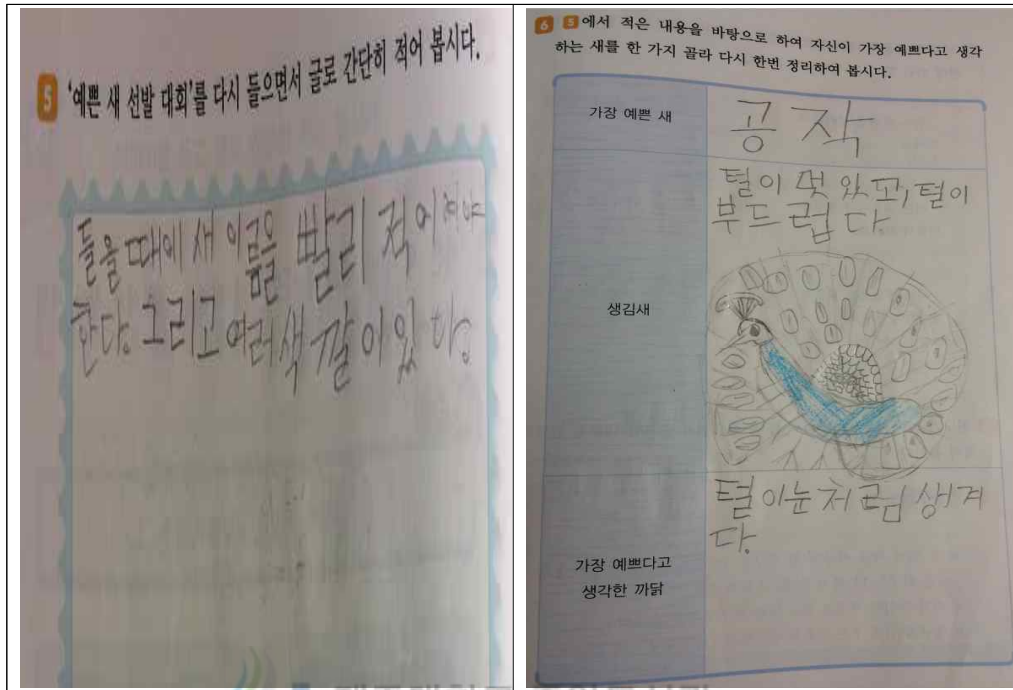 5 '예쁜 새 선발 대회'를 다시 들으면서 글로 간단히 적어 봅시다.
들을 때에 새 이름을 빨리 적어야
한다. 그리고 여러색 깔이있 다.
6 5에서 적은 내용을 바탕으로 하여 자신이 가장 예쁘다고 생각
하는 새를 한 가지 골라 다시 한번 정리하여 봅시다.
가장 예쁜 새
공 작
생김새
털이 멋 있고, 털이
부드 럽 다
가장 예쁘다고
생각한 까닭
털 이눈 처 럼 생겨
다.